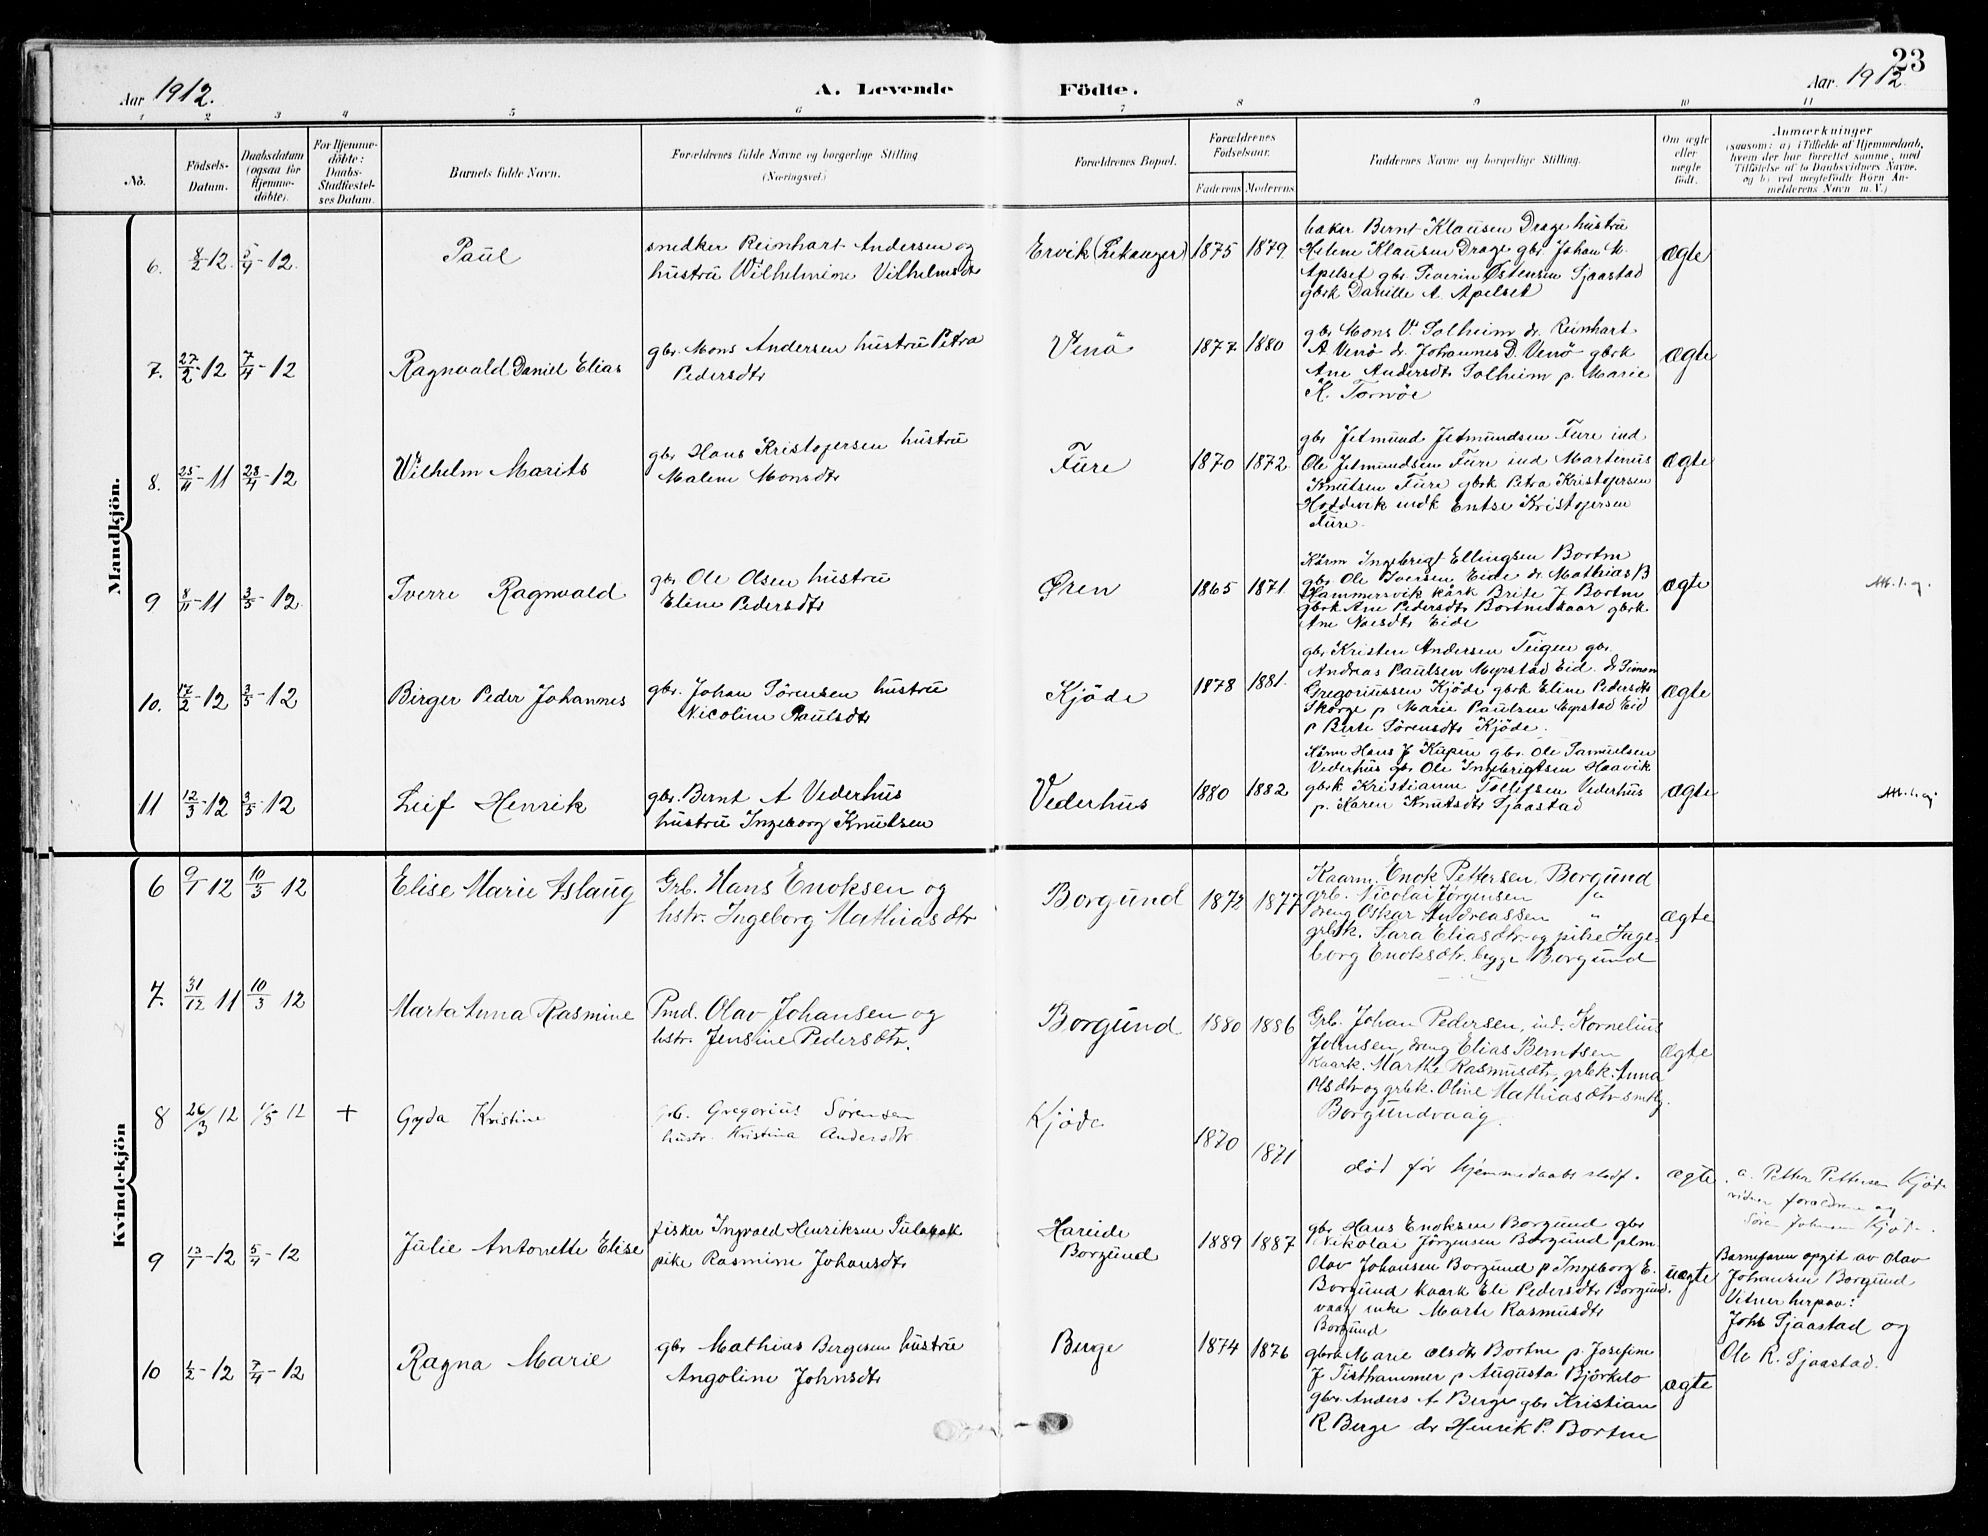 23
Aar 1912.
A. Levende Födte.
Aar. 1912.
1 2 3 4 5 6 7 8 9 10 11
No.
Födsels-
Datum.
Daabsdatum
(ogsaa for
Hjemme-
döbte).
For Hjemme-
döbte:
Daabs-
Stadfæstel-
ses Datum.
Barnets fulde Navn.
Forældrenes fulde Navne og borgerlige Stilling
(Næringsvei.)
Forældrenes Bopæl.
Forældrenes
Födselsaar.
Faderens Moderens
Faddernes Navne og borgerlige Stilling.
Om ægte
eller
uægte
födt.
Anmærkninger
(saasom: a) i Tilfælde af Hjemmedaab,
hvem der har forrettet samme, med
Tilföielse af to Daabsvidners Navne,
og b) ved uægtefödte Börn An-
melderens Navn m. V.)
Mandkjön.
6. 8/2-12. 5/4-12.
Paul
snedker Reinhart Andersen og
hustru Wilhelmine Vilhelmsdtr
Ervik (Selanger) 1875 1879.
baker Bernt Klausen Drage hustru
Helene Klausen Drage gbr. Johan M.
Apelset gbr. Severin Østensen Sjaastad
gbrk Danille A. Apelset
ægte
7. 27/2-12 7/4-12
Ragnvald Daniel Elias
gbr. Mons Andersen hustru Petra
Pedersdtr
Venö 1877 1880
gbr Mons V. Solheim dr. Reinhart
A Venö dr. Johannes D. Venö gbrk
Ane Andersdtr Solheim p. Marie
K. Torvöe
ægte
8. 25/11-11 28/4-12
Wilhelm Marits
gbr Hans Kristofersen hustru
Malene Monsdtr
Fure 1870 1872.
gbr Jetmund Jetmundsen Fure ind
Ole Jetmundsen Fure ind Martenus
Knutsen Fure gbrk Petra Kristofersen
Hoddevik indk Entse Kristofersen
Fure.
ægte
9 8/11-11 3/5-12.
Sverre Ragnvald
gbr Ole Olsen hustru
Eline Pedersdtr
Øren 1865 1871
Kårm Ingebrigt Ellingsen Bortne
gbr. Ole Iversen Eide dr. Mathias B
Hammersvik kårk Brite J Bortne
gbrk Ane Pedersdtr Bortneskaar gbrk
Ane Noesdtr Eide
ægte
10. 17/2-12 3/5-12
Birger Peder Johannes
gbr. Johan Sörensen hustru
Nicoline Paulsdtr
Kjöde 1878 1881.
gbr Kristen Andersen Teigen gbr.
Andreas Paulsen Myrstad Eid. dr Simon
Gregoriussen Kjöde gbrk Eline Pedersdtr
Skorge p Marie Paulsen Myrstad Eid
p Berte Sörensdtr Kjöde.
ægte
11 12/3-12 3/5-12
Leif Henrik
gbr. Bernt A Vederhus
hustru Ingeborg Knutsen
Vederhus 1880 1882
Kårm Hans J Kupen gbr. Ole Samuelsen
Vederhus gbr Ole Ingebrigtsen Haavik
gbrk Kristianne Tollefsen Vederhus
p. Karen Knutsdtr Sjaastad
ægte
Kvindekjön
6 9/1 12 10/3 12
Elise Marie Aslaug
Grb. Hans Enoksen og
hstr. Ingeborg Mathiasdtr
Borgund 1872 1877
Kaarm. Enok Pettersen, Borgund
grb. Nicolai Jørgensen "
dreng Oskar Andreassen "
grbk. Sara Eliasdtr og pike Inge-
borg Enoksdtr. begge Borgund
ægte
7. 31/12 11 10/3 12
Marta Anna Rasmine
Pmd. Olav Johansen og
hstr. Jensine Pedersdtr.
Borgund 1880 1886
Grb. Johan Pedersen, ind. Kornelius
Johnsen, dreng Elias Berntsen
kaark. Marthe Rasmusdtr, grbk. Anna
Olsdtr og grbk. Oline Mathiasdtr smtlg.
Borgundvaag.
ægte
8 26/3 12 1/5 12 +
Gyda Kristine
grb. Gregorius Sørensen
hustr. Kristina Andersdtr.
Kjøde 1870 1871
død før hjemmedaabs stadf.
ægte
a. Petter Pettersen Kjøde
vidner foraldrene og
Sør. Johnsen Kjøde.
9 13/1-12 5/4-12
Julie Antonette Elise
fisker Ingvald Henriksen
pike Rasmine Johansdtr
Hareide
Borgund
1889 1887
gbr Hans Enoksen Borgund gbr
Nikolai Jörgensen Borgund plm.
Olav Johansen Borgund p Ingeborg E.
Borgund kaark Eli Pedersdtr Borgund
vaag enke Marte Rasmusdtr
Borgund
uægte
Barnefaren opgit av Olav
Johansen Borgund
Vitner herpaa:
Johs Sjaastad og
Ole R. Sjaastad.
10 6/2-12 7/4-12
Ragna Marie
gbr Mathias Bergesen hustru
Angoline Johnsdtr
Berge 1874 1876
gbrk Marie Olsdtr Bortne p. Josefine
J Tisthammer p Augusta Björkelo
gbr. Anders A Berge gbr Kristian
R Berge dr Henrik P. Bortne
ægte